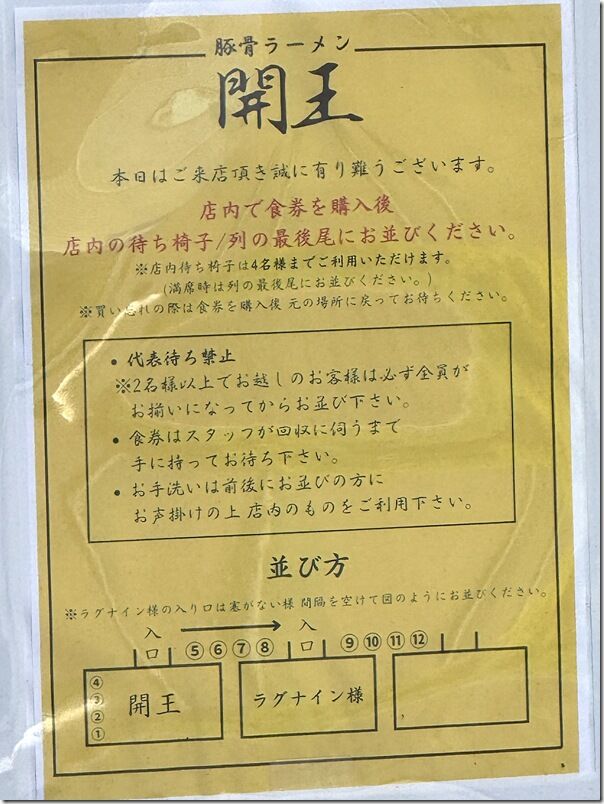 豚骨ラーメン
開王
本日はご来店頂き誠に有り難うございます。
店内で食券を購入後
店内の待ち椅子/列の最後尾にお並びください。
※店内待ち椅子は4名様までご利用いただけます。
(満席時は列の最後尾にお並びください。)
※買い忘れの際は食券を購入後 元の場所に戻ってお待ちください。
• 代表待ち禁止
※2名様以上でお越しのお客様は必ず全員が
お揃いになってからお並び下さい。
• 食券はスタッフが回収に伺うまで
手に持ってお待ち下さい。
• お手洗いは前後にお並びの方に
お声掛けの上 店内のものをご利用下さい。
並び方
※ラグナイン様の入り口は塞がない様 間隔を空けて図のようにお並びください。
入口 ⑤⑥⑦⑧ 入口 ⑨⑩⑪⑫
④
③
②
①
開王
ラグナイン様